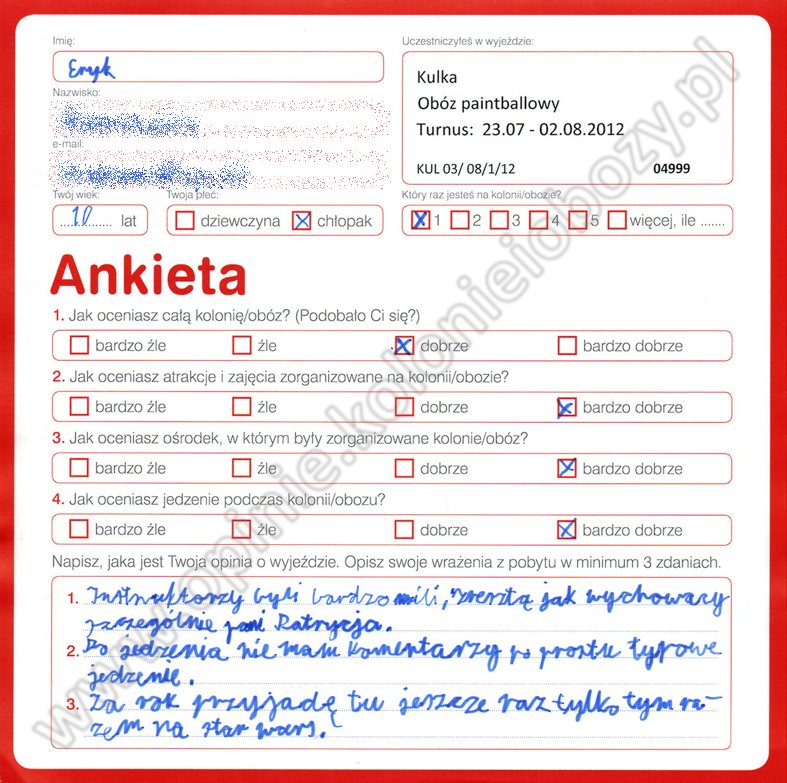 Imię:
Eryk
Uczestniczyłeś w wyjeździe:
Kulka
Obóz paintballowy
Turnus: 23.07 - 02.08.2012
KUL 03/ 08/1/12 04999
Nazwisko:
e-mail:
Twój wiek:
10 lat
Twoja płeć:
dziewczyna chłopak
Który raz jesteś na kolonii/obozie?
1 2 3 4 5 więcej, ile .......
Ankieta
1. Jak oceniasz całą kolonię/obóz? (Podobało Ci się?)
bardzo źle źle dobrze bardzo dobrze
2. Jak oceniasz atrakcje i zajęcia zorganizowane na kolonii/obozie?
bardzo źle źle dobrze bardzo dobrze
3. Jak oceniasz ośrodek, w którym były zorganizowane kolonie/obóz?
bardzo źle źle dobrze bardzo dobrze
4. Jak oceniasz jedzenie podczas kolonii/obozu?
bardzo źle źle dobrze bardzo dobrze
Napisz, jaka jest Twoja opinia o wyjeździe. Opisz swoje wrażenia z pobytu w minimum 3 zdaniach.
1. Instruktorzy byli bardzo mili, zresztą jak wychowawcy
szczególnie pani Patrycja.
2. Do jedzenia nie mam komentarzy po prostu typowe
jedzenie.
3. Za rok przyjadę tu jeszcze raz tylko tym ra-
zem na star wars.
www.opinie.kolonieiobozy.pl